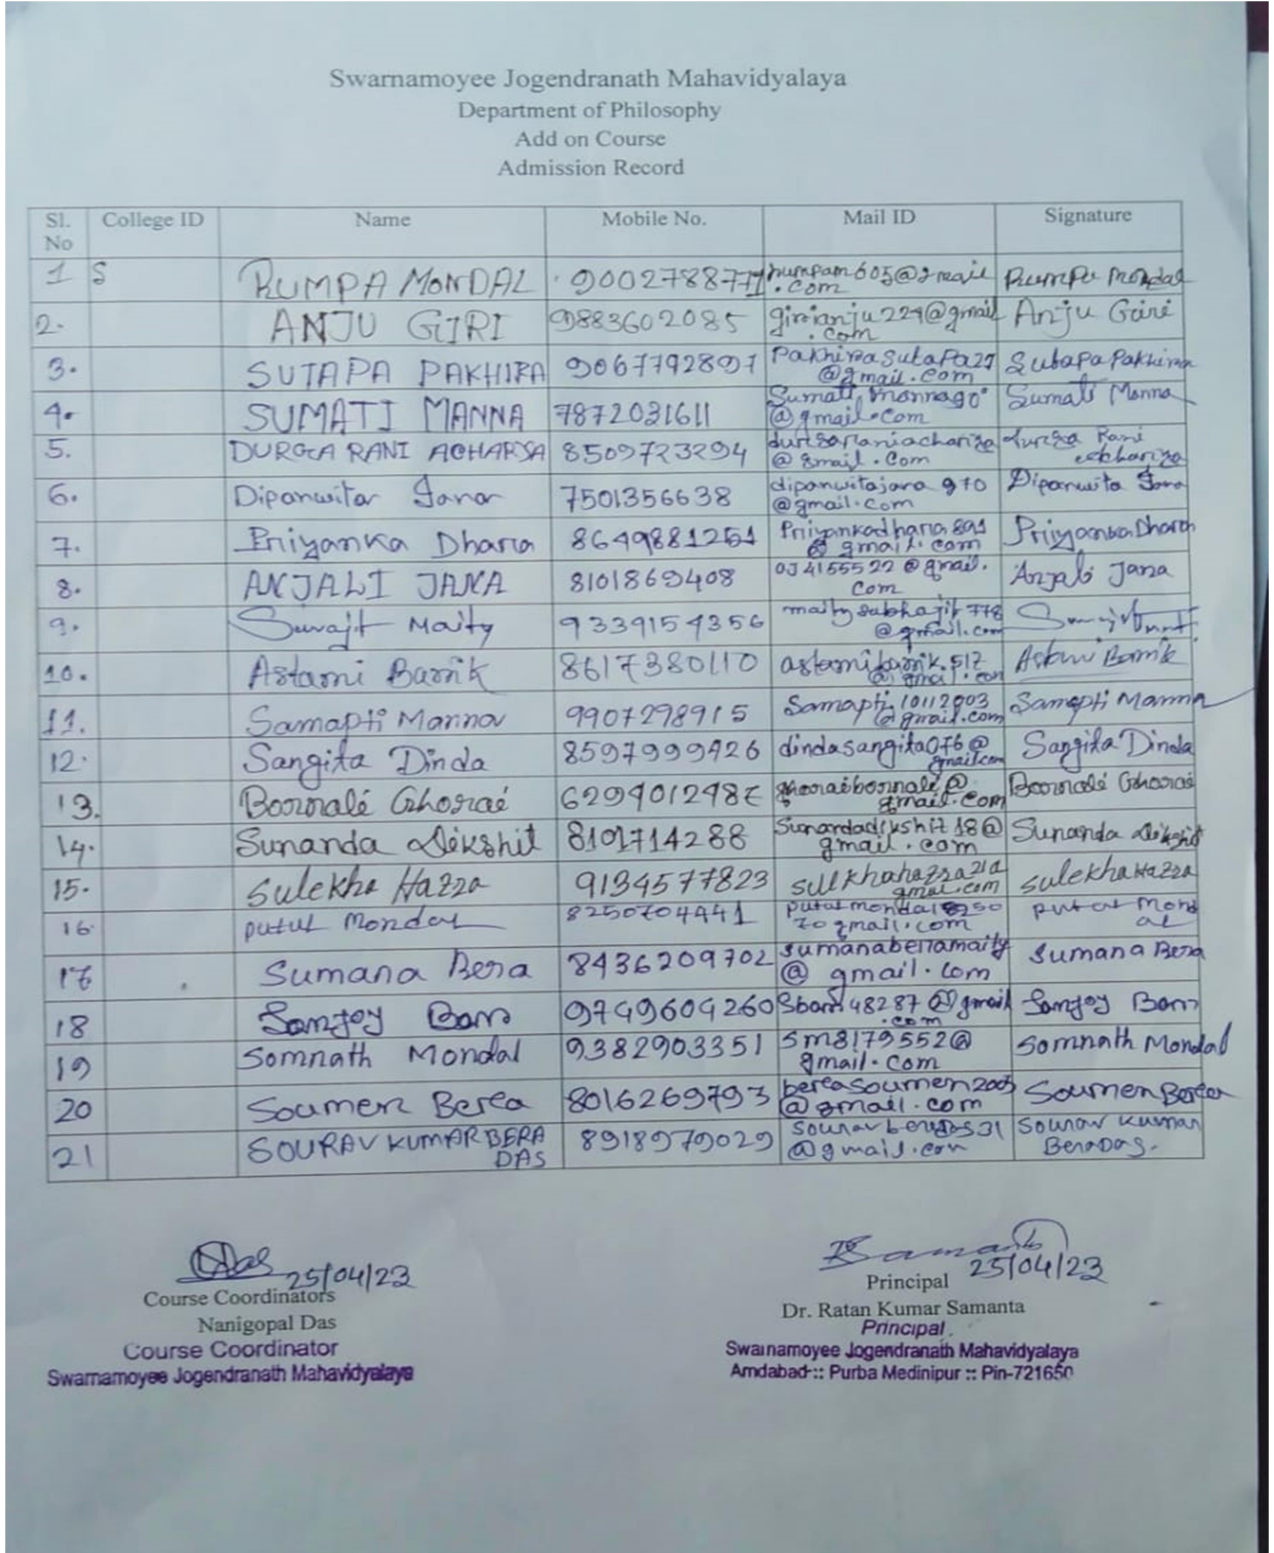 Swarnamoyee Jogendranath Mahavidyalaya
Department of Philosophy
Add on Course
Admission Record
Sl. No College ID Name Mobile No. Mail ID Signature
1 S RUMPA MONDAL 9002788771 rumpam605@gmail.com Rumpa Mondal
2. ANJU GIRI 9883602085 girianju229@gmail.com Anju Giri
3. SUTAPA PAKHIRA 9067792897 Pakhirasutapa27@gmail.com Sutapa Pakhira
4. SUMATI MANNA 7872031611 @gmail.com Sumati Manna
5. DURGA RANI ACHARYA 8509723294 @gmail.com
6. Dipanwita Jana 7501356638 dipanwitajana970@gmail.com Dipanwita Jana
7. Priyanka Dhara 8649881251 Priyankadhara891@gmail.com Priyanka Dhara
8. ANJALI JANA 8101869408 @gmail.com Anjali Jana
9. Surajit Maity 9339154356 maitysubhajit778@gmail.com
10. Astami Barik 8617380110 astamibarik.517@gmail.com Astami Barik
11. Samapti Manna 9907298915 Samapti10112003@gmail.com Samapti Manna
12. Sangita Dinda 8597999426 dindasangita076@gmail.com Sangita Dinda
13. Barnali Ghorai ghoraibarnali@gmail.com Barnali Ghorai
14. Sunanda Dikshit 8101714288 Sunandadikshit18@gmail.com Sunanda Dikshit
15. Sulekha Hazra 9134577823 Sulekha Hazra
16. Putul Mondal 8250704441 Putul Mondal
17 Sumana Bera 8436209702 sumanaberamaity@gmail.com Sumana Bera
18 Sanjoy Bam 9749604260 Sbam48287@gmail.com Sanjoy Bam
19 Somnath Mondal 9382903351 sm8179552@gmail.com Somnath Mondal
20 Soumen Berea 8016269793 bereasoumen2003@gmail.com Soumen Berea
21 SOURAV KUMAR BERA DAS 8918979029 @gmail.com Sourav Kumar BeraDas.
25/04/23
Course Coordinators
Nanigopal Das
Course Coordinator
Swarnamoyee Jogendranath Mahavidyalaya
25/04/23
Principal
Dr. Ratan Kumar Samanta
Principal
Swarnamoyee Jogendranath Mahavidyalaya
Amdabad :: Purba Medinipur :: Pin-721650